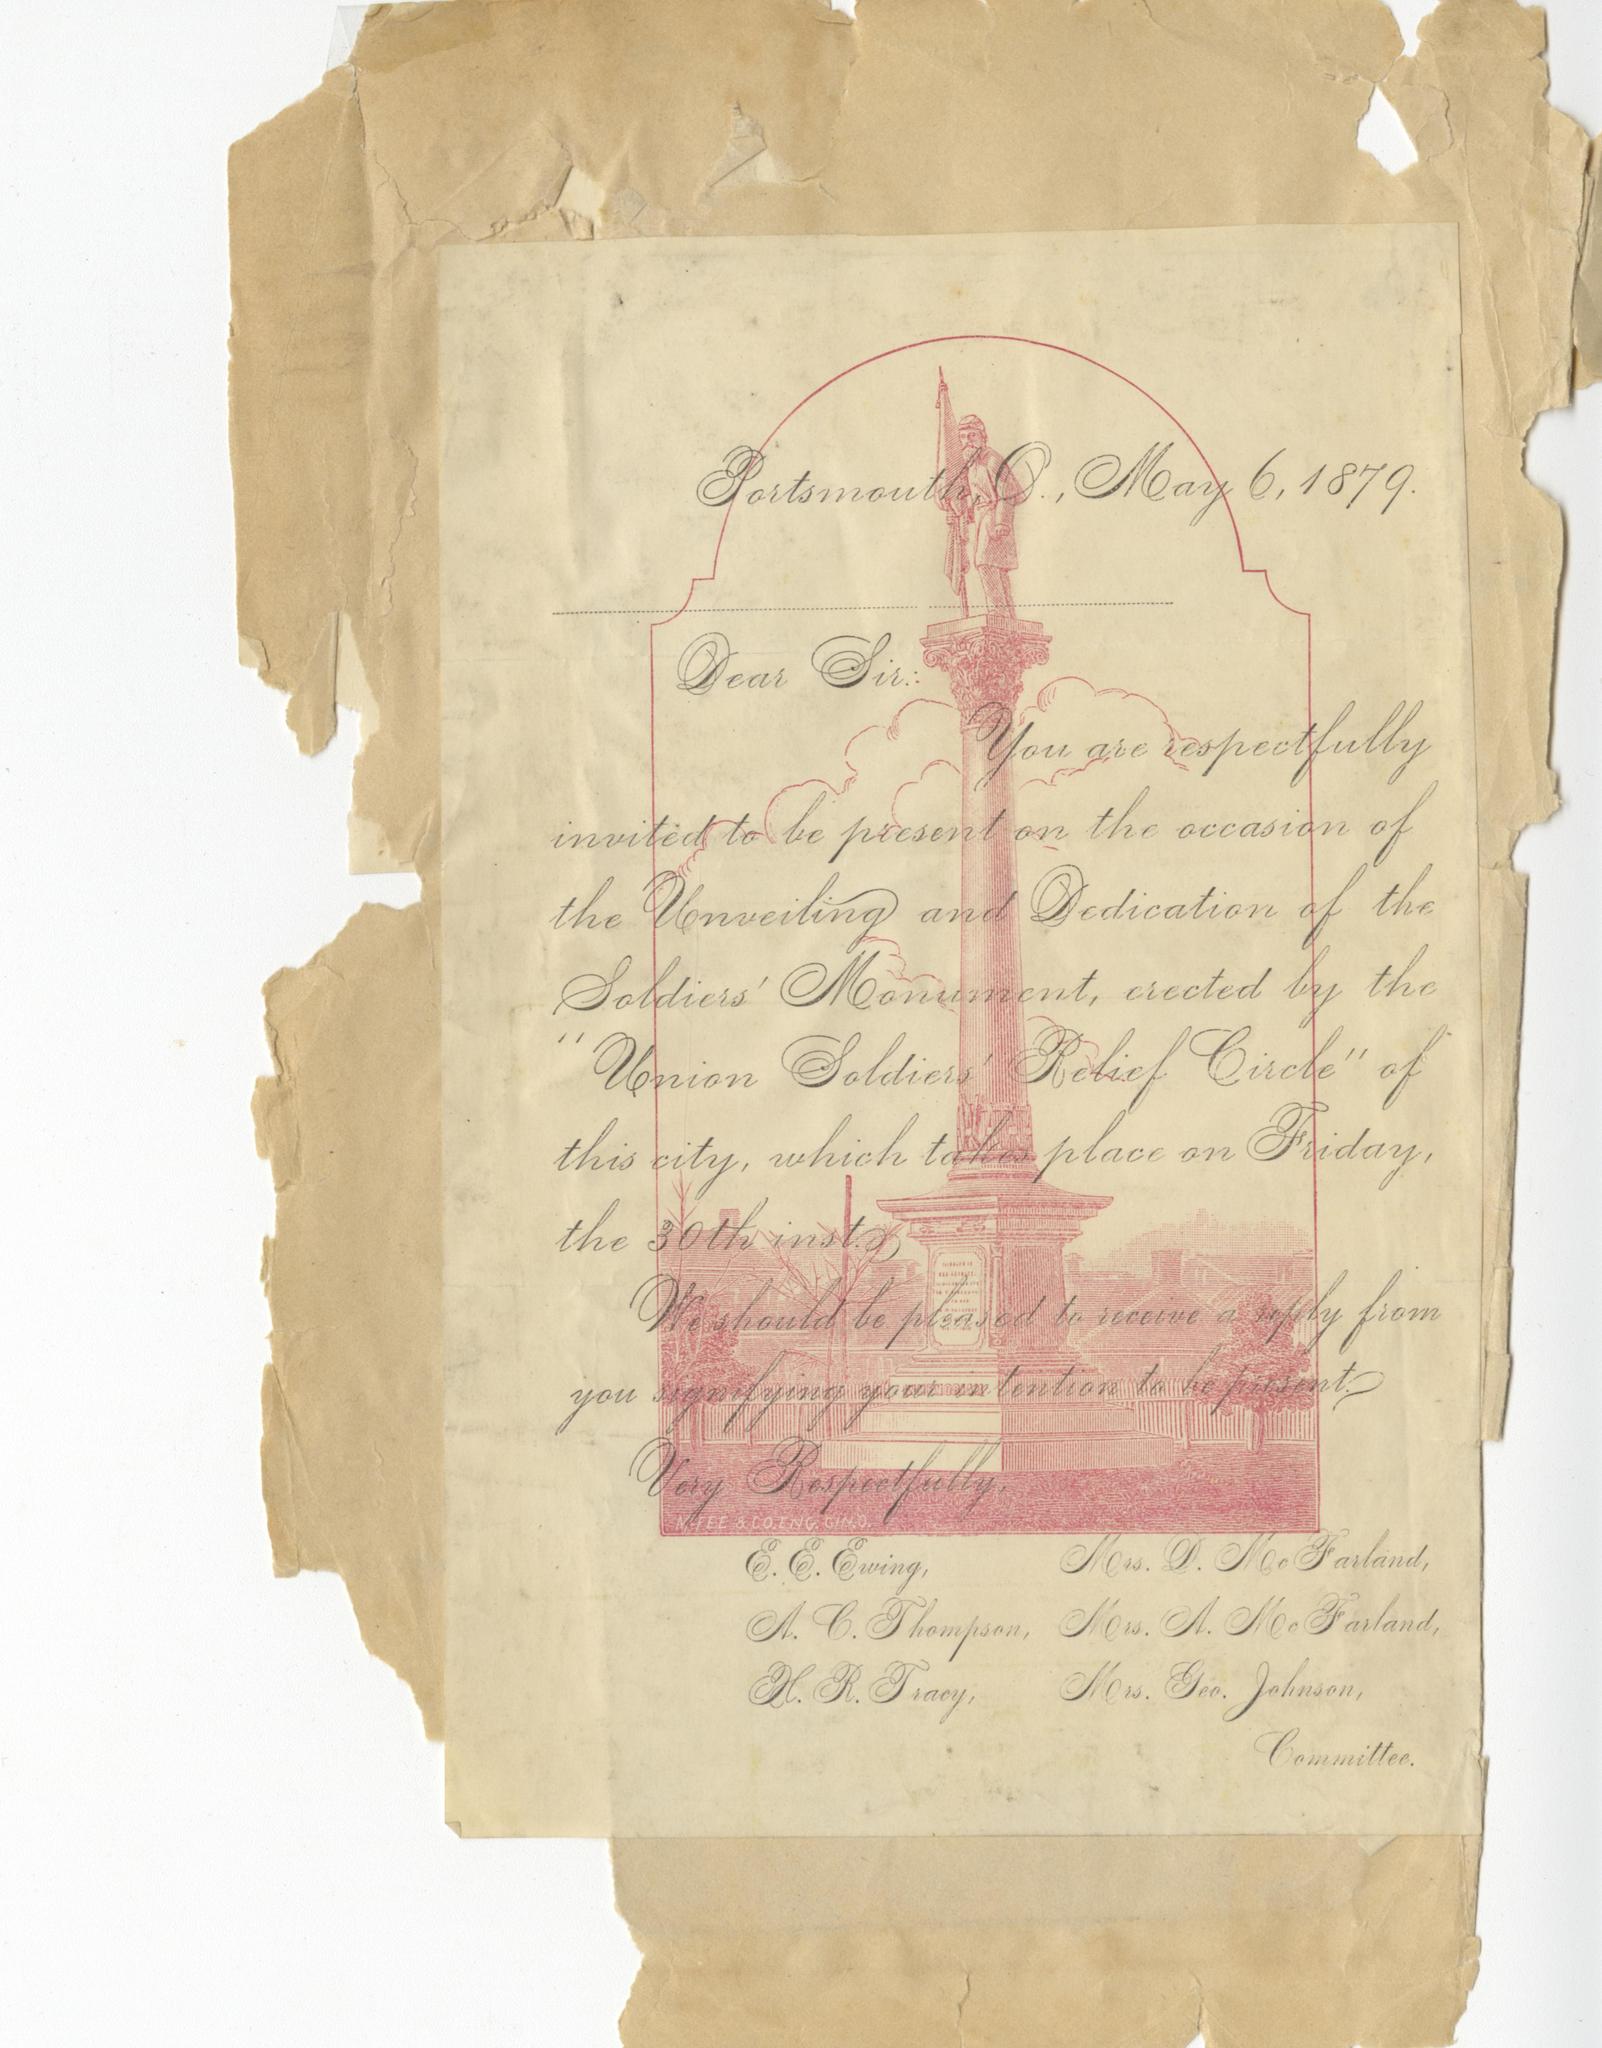 Portsmouth, O., May 6, 1879.
Dear Sir:
You are respectfully
invited to be present on the occasion of
the Unveiling and Dedication of the
Soldiers' Monument, erected by the
"Union Soldiers' Relief Circle" of
this city, which takes place on Friday,
the 30th inst.
We should be pleased to receive a reply from
you signifying your intention to be present.
Very Respectfully,
E. E. Ewing, Mrs. D. McFarland,
A. C. Thompson, Mrs. A. McFarland,
H. R. Tracy, Mrs. Geo. Johnson,
Committee.